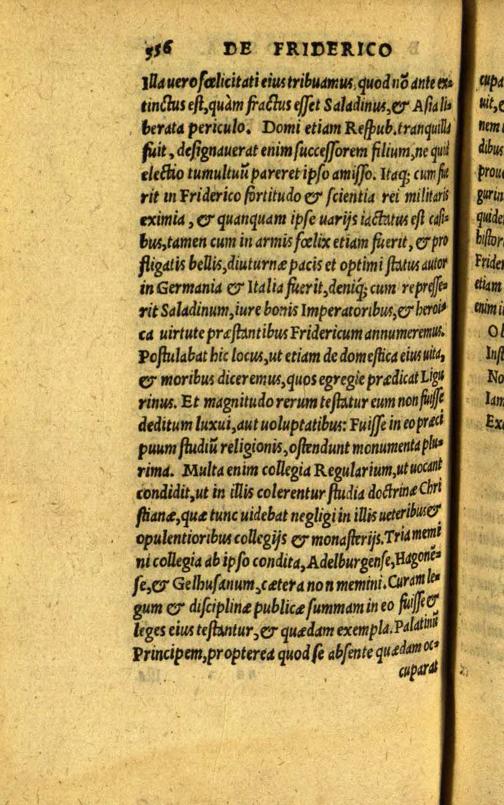 356 DE FRIDERICO
Illa uero fœlicitati eius tribuamus, quod nõ ante ex-
tinctus est, quàm fractus esset Saladinus, & Asia li-
berata periculo. Domi etiam Respub. tranquilla
fuit, designauerat enim successorem filium, ne quid
electio tumultuũ pareret ipso amisso. Itaq; cum fue
rit in Friderico fortitudo & scientia rei militaris
eximia, & quanquam ipse uarijs iactatus est casi-
bus, tamen cum in armis fœlix etiam fuerit, & pro
fligatis bellis, diuturnæ pacis et optimi status autor
in Germania & Italia fuerit, deniq; cum represse-
rit Saladinum, iure bonis Imperatoribus, & heroi-
ca uirtute præstantibus Fridericum annumeremus.
Postulabat hic locus, ut etiam de domestica eius uita,
& moribus diceremus, quos egregie prædicat Ligu
rinus. Et magnitudo rerum testatur eum non fuisse
deditum luxui, aut uoluptatibus: Fuisse in eo præci
puum studiũ religionis, ostendunt monumenta plu-
rima. Multa enim collegia Regularium, ut uocant
condidit, ut in illis colerentur studia doctrinæ Chri
stianæ, quæ tunc uidebat negligi in illis ueteribus &
opulentioribus collegijs & monasterijs. Tria memi
ni collegia ab ipso condita, Adelburgense, Hagonẽ-
se, & Gelhusanum, cætera non memini. Curam le-
gum & disciplinæ publicæ summam in eo fuisse &
leges eius testantur, & quædam exempla. Palatinũ
Principem, propterea quod se absente quædam oc-
cuparat
cupa
uit, e
nem
dibus
prou
gurin
quide
histor
Frider
etiam
enim i
O
Inst
No
Iam
Exc